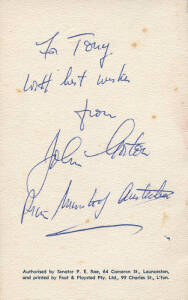 For Tony.
With best wishes
from
John Gorton
Prime Minister of Australia
Authorised by Senator P. E. Rae, 64 Cameron St., Launceston,
and printed by Foot & Playsted Pty. Ltd., 99 Charles St., L'ton.